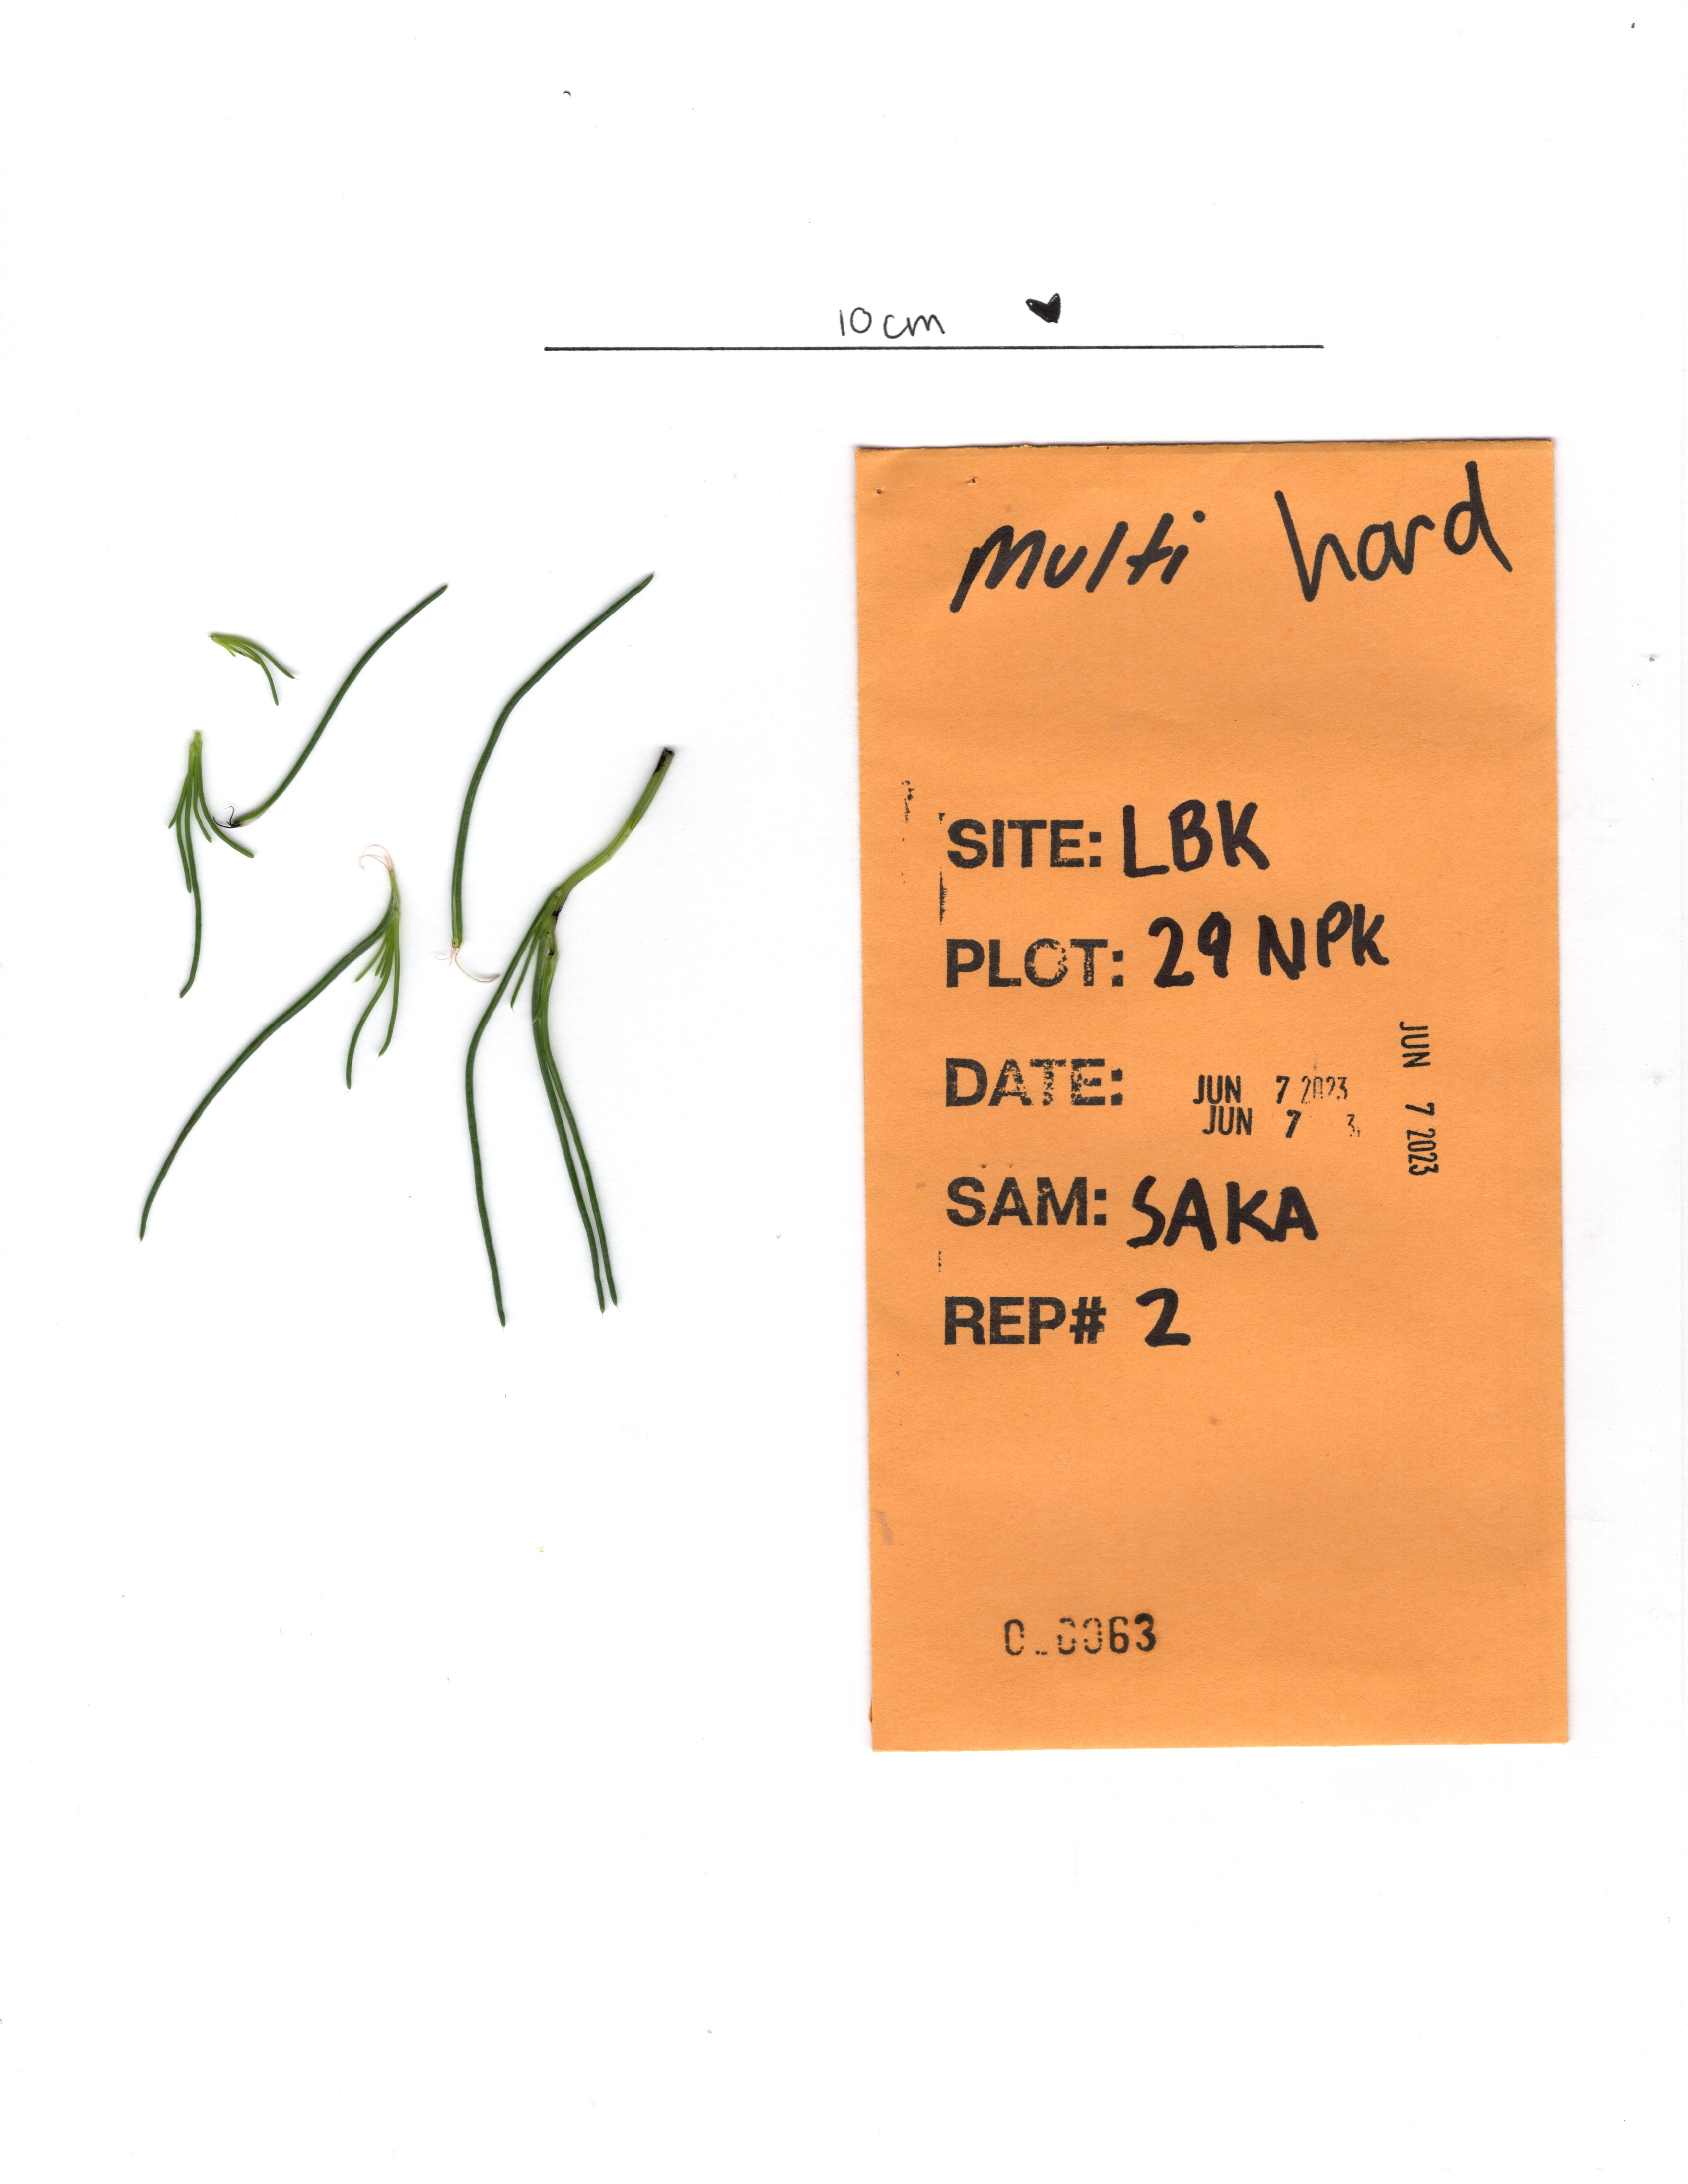 10 cm
Multi hard
SITE: LBK
PLOT: 29 NPK
DATE: JUN 7 2023
JUN 7 3
JUN 7 2023
SAM: SAKA
REP# 2